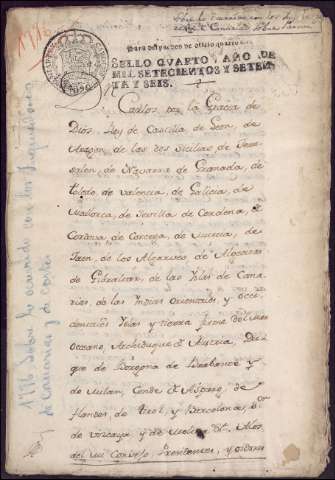 1776
Para despachos de oficio quatro mrs.
SELLO QVARTO, AÑO DE
MIL SETECIENTOS Y SETEN
TA Y SEIS.
Carlos por la Gracia de
Dios, Rey de Castilla de Leon, de
Aragon, de las dos Sicilias de Jeru-
salen, de Navarra de Granada, de
Toledo, de Valencia, de Galicia, de
Mallorca, de Sevilla de Cerdena, de
Cordova de Corcega, de Murcia, de
Jaen, de los Algarves, de Algeciras
de Gibraltar, de las Islas de Cana-
rias, de las Indias Orientales, y occi-
dentales Islas y tierra firme del Mar
Oceano, Archiduque de Austria, Du-
que de Borgoña de Brabante y
de Milan, Conde de Aspurg, de
Flandes, de Tirol, y Barcelona, Sr.
de Vizcaya y de Molina &c. A los
del mi Consejo, Presidentes, y oidores
1776 Sobre lo ocurrido con los
de Canarias y de